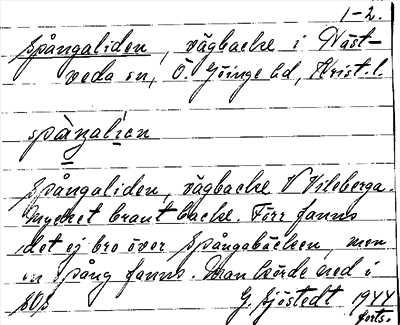 1-2.
Spångaliden, vägbacke i Näst-
veda sn, Ö. Göinge hd, Krist. l.
spàŋalíən
Spångaliden, vägbacke V Vileberga.
Mycket brant backe. Förr fanns
det ej bro över Spångabäcken, men
en spång fanns. Man körde ned i
G. Sjöstedt 1944
forts.